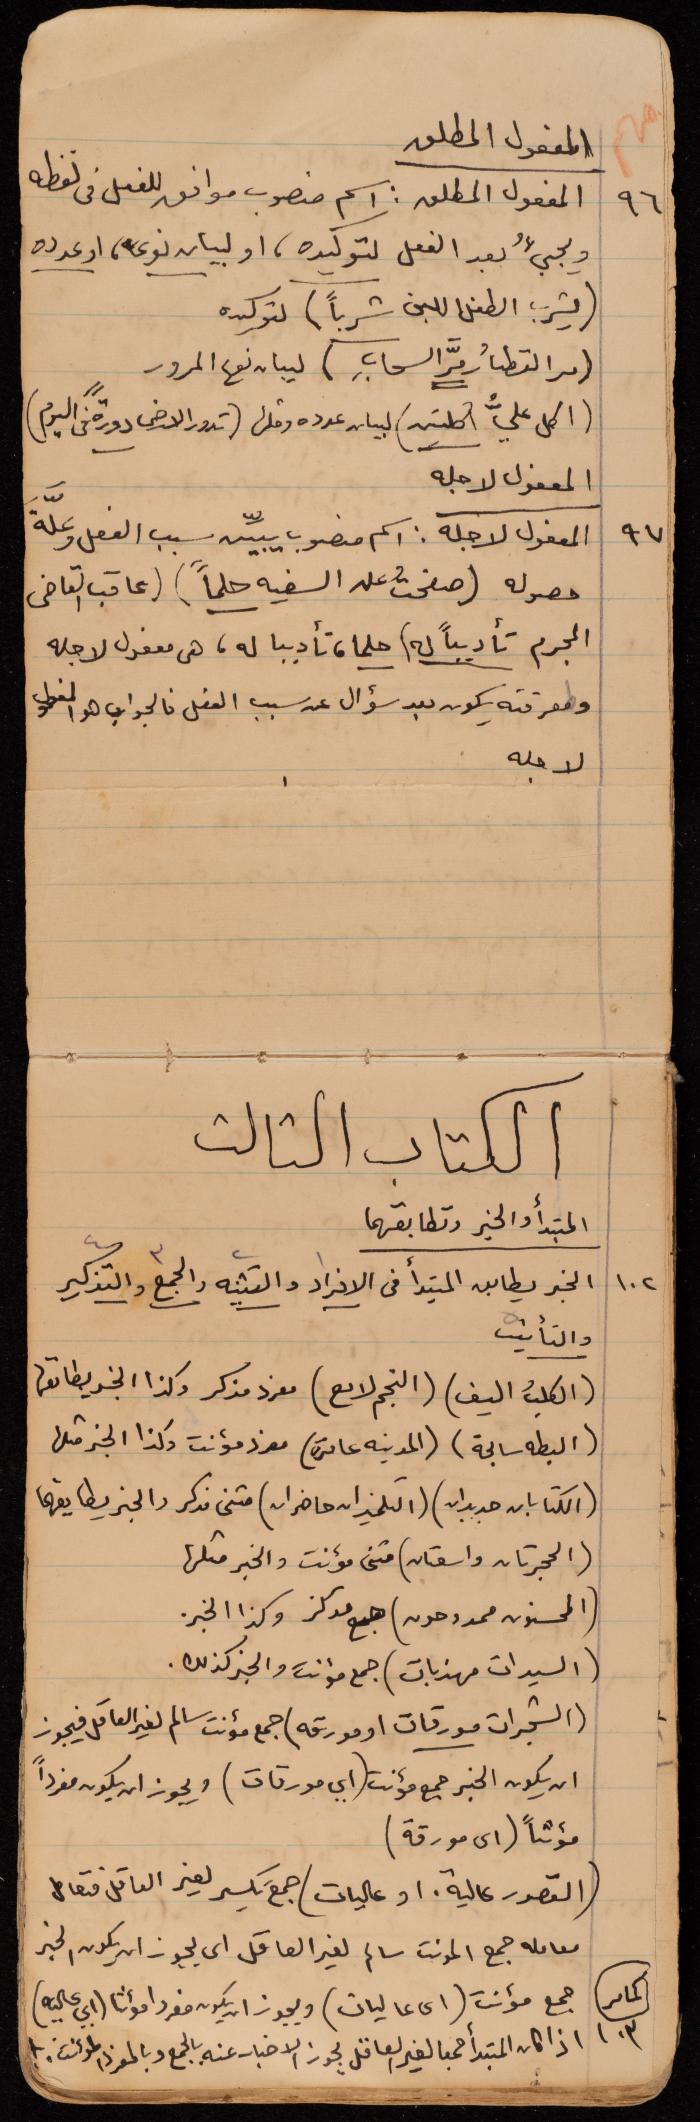 المفعول المطلق
٩٦ المفعول المطلق : اسم منصوب موافق للفعل في لفظه
ويجيءُ بعد الفعل لتوكيده، او لبيان نوعه، او عدده
(يشرب الطفل اللبن شرباً) لتوكيده
(مر القطارُ مرَّ السحابِ) ليبان نوع المرور
(اكل عليٌّ اكلتين) لبيان عدده ومثلها (تدور الارض دورةً في اليوم)
المفعول لاجله
٩٧ المفعول لاجله : اسم منصوب يبيّن سبب الفعل وعلّة
حصوله (صفحتُ عن السفيه حلماً) (عاقب القاضي
المجرم تأديباً له) حلما، تأديبا له، هى مفعول لاجله
ومعرفته يكون بعد سؤال عن سبب الفعل فالجواب هو المفعول
لاجله
الكتاب الثالث
المبتدأ والخبر وتطابقهما
١ ٢ ٣ ٤
١٠٢ الخبر يطابق المبتدأ في الافراد والتثنيه والجمع والتذكير
٥
والتأنيث
(الكلبُ اليف) (النجم لامع) مفرد مذكر وكذا الخبر يطابقها
(البطه سابحة) (المدينه عامرة) مفرد مؤنث وكذا الخبر مثلها
(الكتابان جديدان) (التلميذان حاضران) مثنى مذكر والخبر يطابقهما
(الحجرتان واسعتان) مثنى مؤنث والخبر مثلها
(المحسنون ممدوحون) جمع مذكر وكذا الخبر.
(السيدات مهذبات) جمع مؤنث والخبر كذلك.
(الشجرات مورقات او مورقه) جمع مؤنث سالم لغير العاقل فيجوز
ان يكون الخبر جمع مؤنث (اي مورقات) ويجوز ان يكون مفرداً
مؤنثاً (اى مورقة)
(القصور عالية. او عاليات) جمع تكسير لغير العاقل فتعامل
معامله جمع المونث سالم لغير العاقل اى يجوز ان يكون الخبر
جمع مؤنث (اى عاليات) ويجوز ان يكون مفردا مؤنثا (اي عاليه)
١٠٣ اذا كان المبتدأ جمعا لغير العاقل يجوز الاخبار عنه بالجمع وبالمفرد المؤنث.